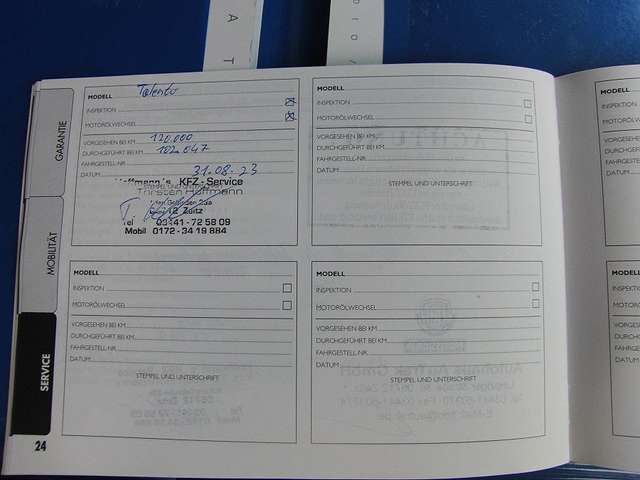 A T
GARANTIE
MOBILITÄT
SERVICE
24
MODELL Talento
INSPEKTION
MOTORÖLWECHSEL
VORGESEHEN BEI KM 120.000
DURCHGEFÜHRT BEI KM 102.047
FAHRGESTELL-NR.
DATUM 31.08.23
STEMPEL UND UNTERSCHRIFT
Hoffmann's KFZ-Service
Thorsten Hoffmann
Tel 03441-72 58 09
Mobil 0172-34 19 884
MODELL
INSPEKTION
MOTORÖLWECHSEL
VORGESEHEN BEI KM
DURCHGEFÜHRT BEI KM
FAHRGESTELL-NR.
DATUM
STEMPEL UND UNTERSCHRIFT
MODELL
INSPEKTION
MOTORÖLWECHSEL
VORGESEHEN BEI KM
DURCHGEFÜHRT BEI KM
FAHRGESTELL-NR.
DATUM
STEMPEL UND UNTERSCHRIFT
MODELL
INSPEKTION
MOTORÖLWECHSEL
VORGESEHEN BEI KM
DURCHGEFÜHRT BEI KM
FAHRGESTELL-NR.
DATUM
STEMPEL UND UNTERSCHRIFT
MODELL
DATUM
MODELL
DATUM